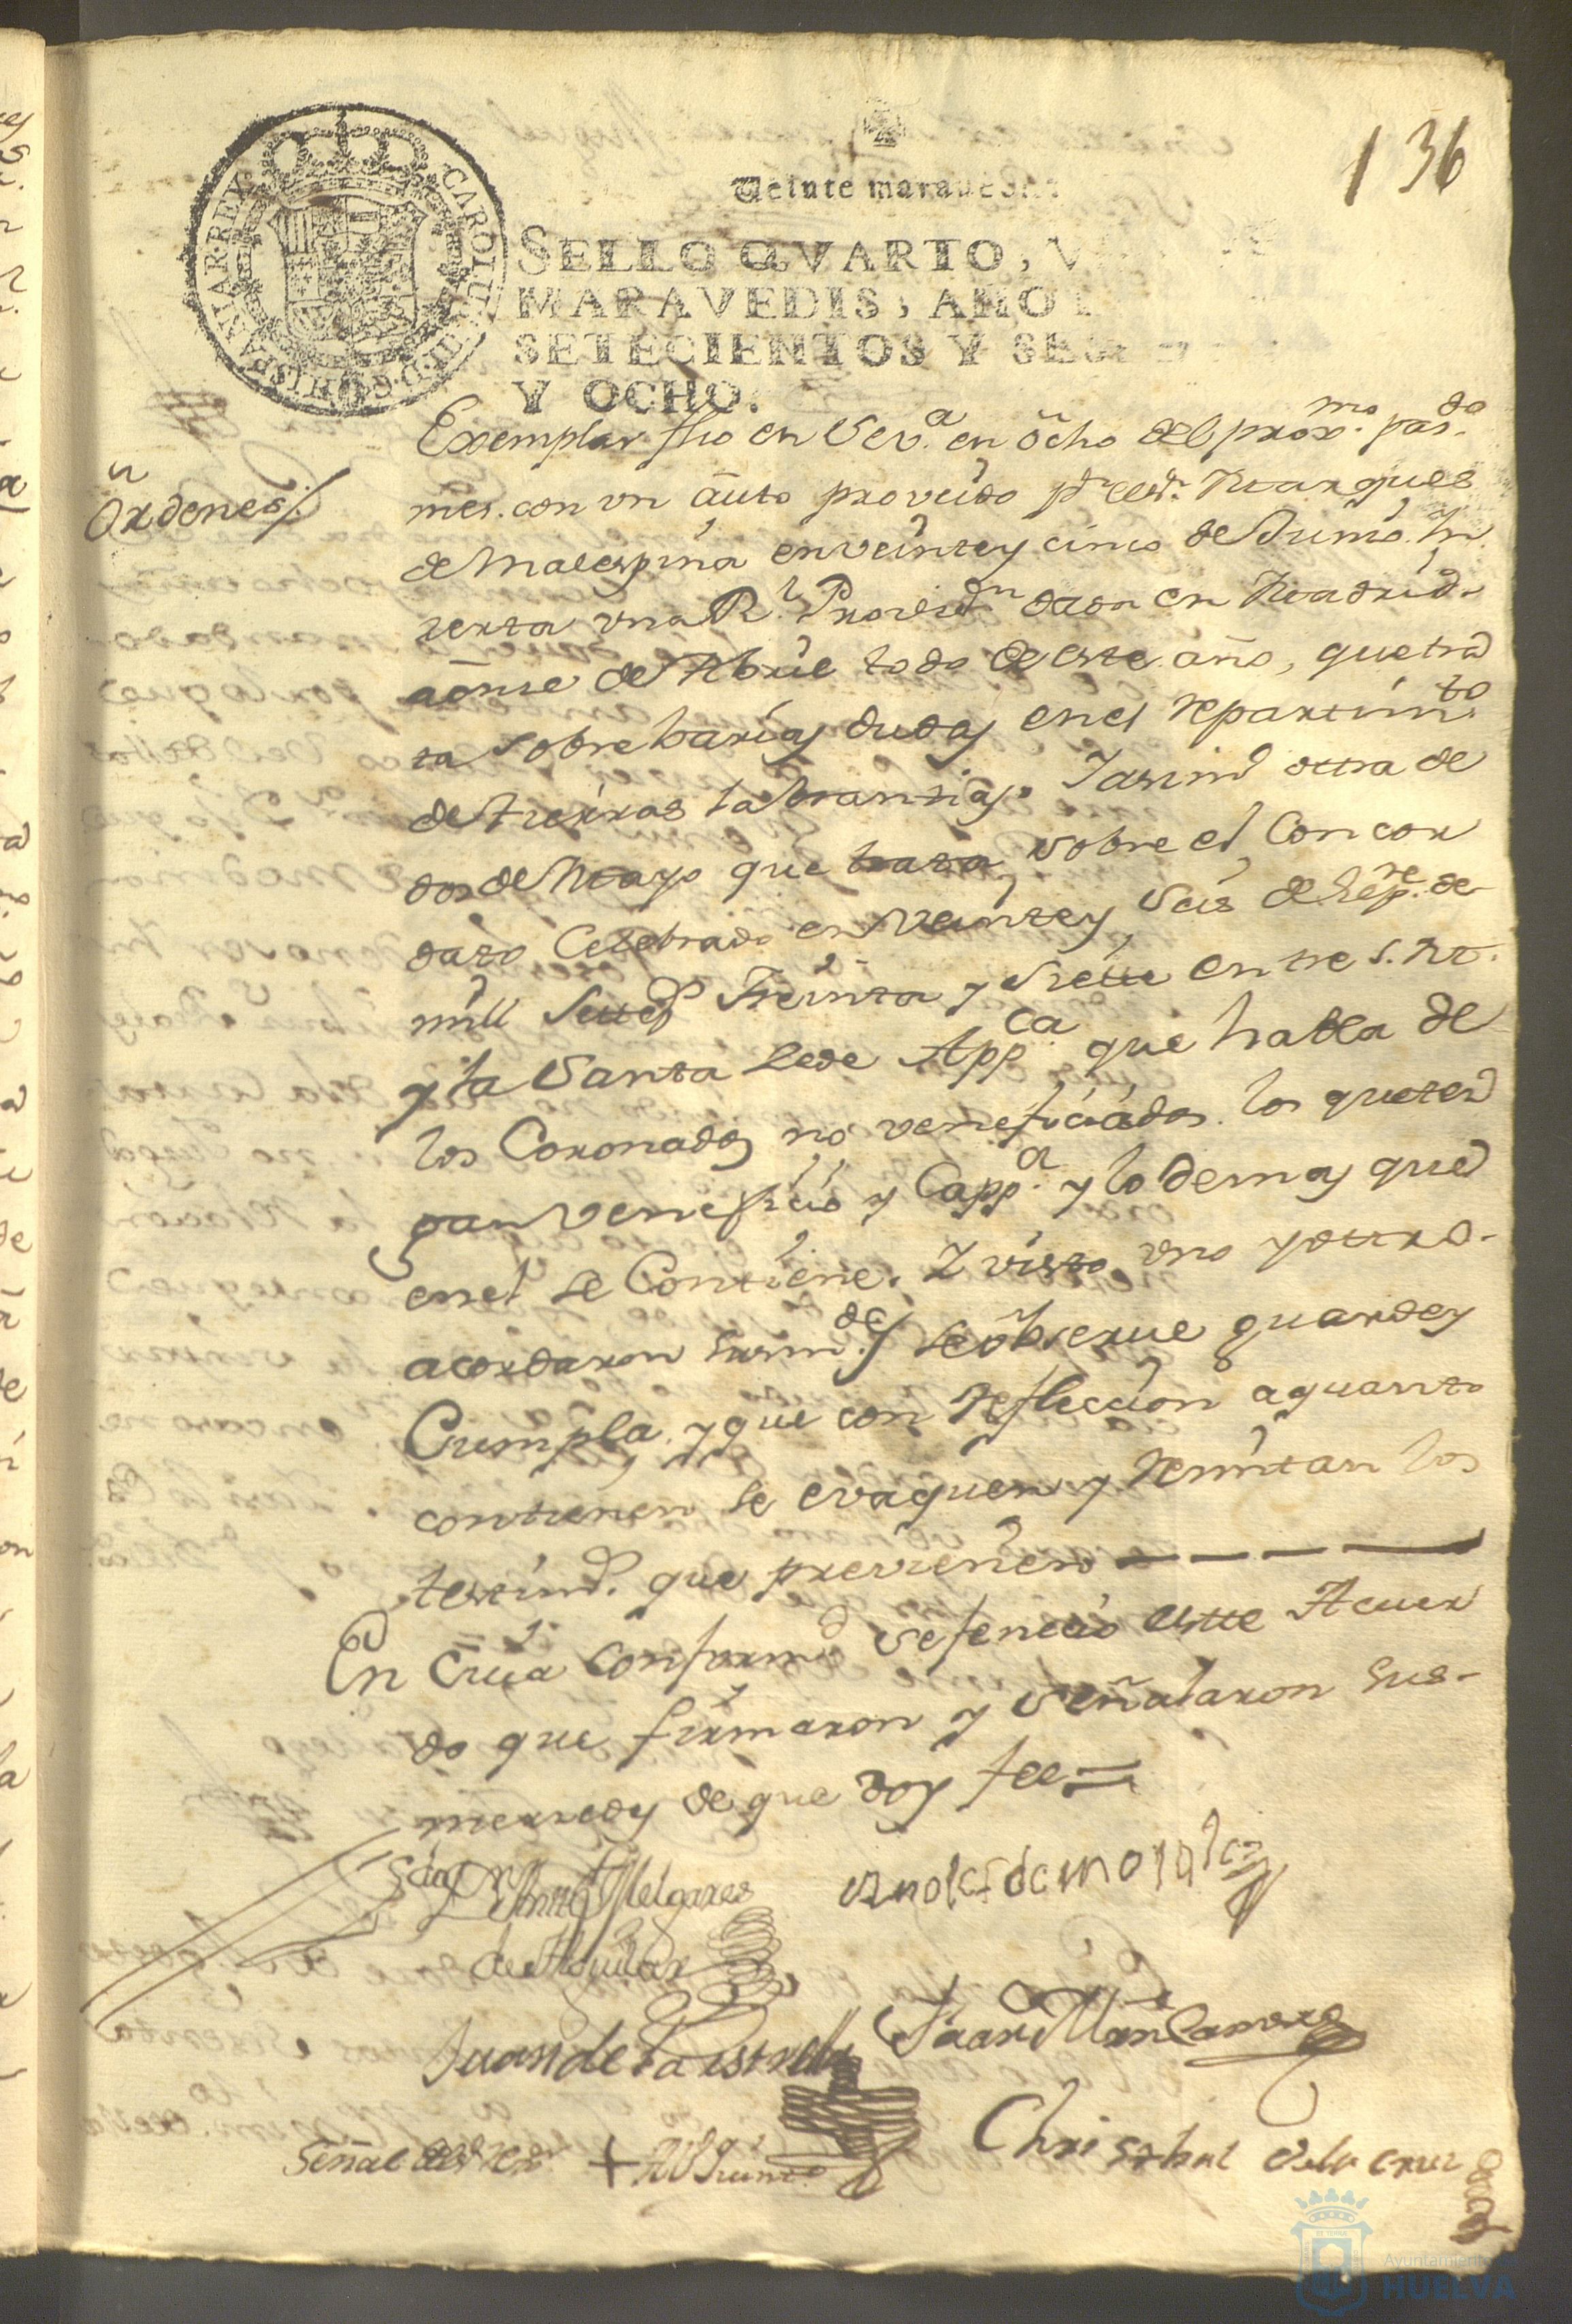 136
Veinte maravedis
SELLO QVARTO, V
MARAVEDIS, AÑO
SETECIENTOS Y SES
Y OCHO.
CAROLUS III D.G. HISPANIAR. REX
Ordenes
Exemplar fho en Sev.a en ocho del prox.mo pas.do
mes. con vn auto proveido p.r el S.r Marques
de Malespina en veinte y cinco de Junio. In
serta vna R.l Provis.on dada en Madrid
a onse de Abril todo de este año, que tra
ta sobre barias dudas en el repartim.to
de tierras labrantias. Y asimi.o ottra de
dos de Mayo que trata sobre el Concor
dato Celebrado en veinte y seis de Sep.re de
mill Settes. Treinta y siette entre S. M.
y la Santa Sede App.ca que habla de
los Coronados no veneficiados. los que ten
gan veneficio y Capp.a y lo demas que
en el se Contiene. Y visto vno y ottro
acordaron sus m.des se observe guarde y
Cumpla. y que con reflección a quanto
contienen se evaquen y remitan los
testim.os que previenen
En Cuia Conform.d se fenecio estte Acuer
do que firmaron y señalaron sus
mercedes de que doy fee
Melgares
de Aguilar
Juan de la Estrella
Juan M.n Carrero
Señal del +
Christobal de la Cruz
Ayuntamiento
HUELVA